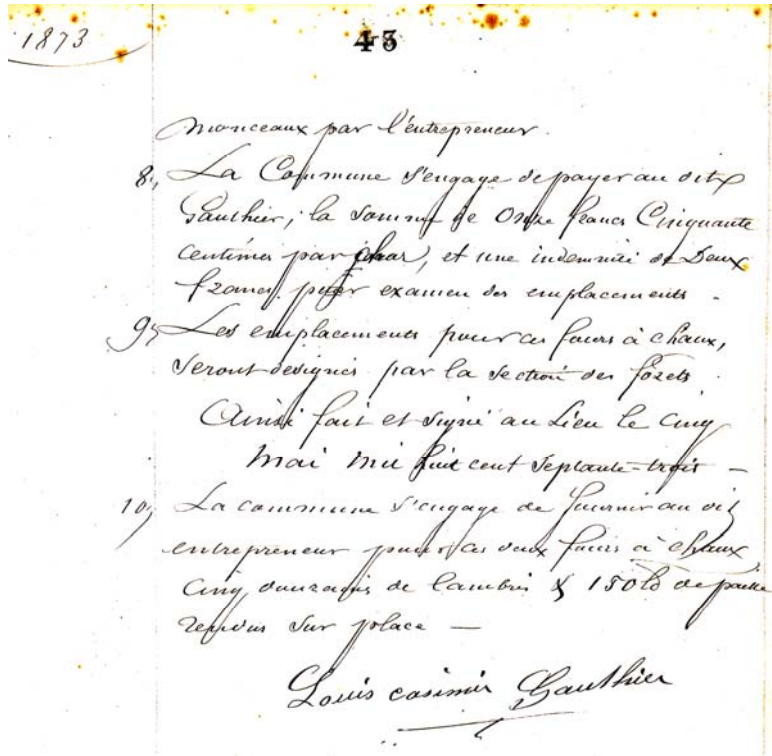 1873
43
monceaux par l'entrepreneur.
8, La Commune s'engage de payer au dit
Gauthier, la somme de Onze francs Cinquante
centimes par char, et une indemnité de Deux
francs pour examen des emplacements.
9, Les emplacements pour ces fours à chaux,
seront designés par la section des forêts.
Ainsi fait et signé au Lieu le cinq
mai mil huit cent septante-trois —
10, La commune s'engage de fournir au dit
entrepreneur pour ces deux fours à chaux
cinq douzaines de lambris & 150 lb de paille
rendus sur place —
Louis casimir Gauthier